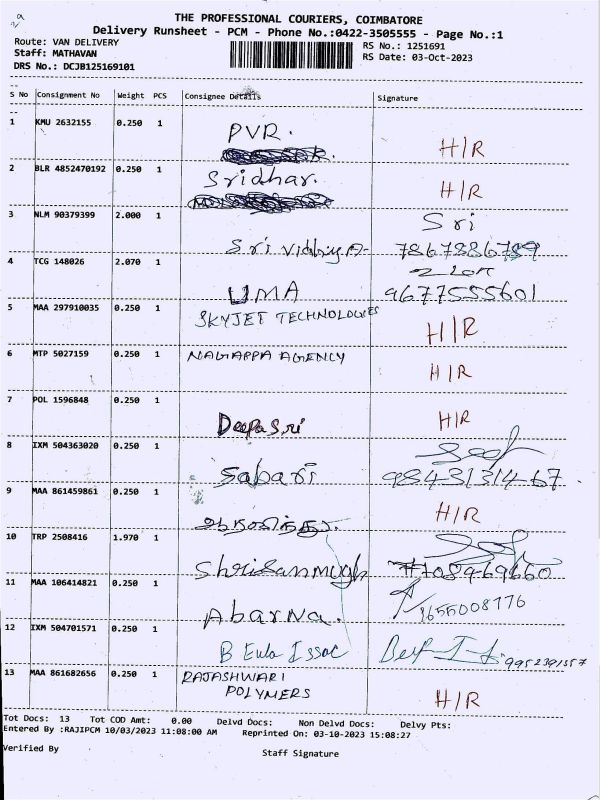 THE PROFESSIONAL COURIERS, COIMBATORE
Delivery Runsheet - PCM - Phone No.:0422-3505555 - Page No.:1
Route: VAN DELIVERY
RS No.: 1251691
Staff: MATHAVAN
RS Date: 03-Oct-2023
DRS No.: DCJB125169101
S No Consignment No Weight PCS Consignee Details Signature
1 KMU 2632155 0.250 1 PVR. H/R
2 BLR 4852470192 0.250 1 Sridhar. H/R
3 NLM 90379399 2.000 1 Sri Vidhiya Sri
7867886789
4 TCG 148026 2.070 1 UMA 9677555601
5 MAA 297910035 0.250 1 SKYJET TECHNOLOGIES H/R
6 MTP 5027159 0.250 1 NAGAPPA AGENCY H/R
7 POL 1596848 0.250 1 Deepa Sri H/R
8 IXM 504363020 0.250 1 Sabari 9843131467
9 MAA 861459861 0.250 1 H/R
10 TRP 2508416 1.970 1 Shrisanmugh
11 MAA 106414821 0.250 1 Abarna.
12 IXM 504701571 0.250 1 B Eula Issac
13 MAA 861682656 0.250 1 RAJASHWARI
POLYMERS H/R
Tot Docs: 13 Tot COD Amt: 0.00 Delvd Docs: Non Delvd Docs: Delvy Pts:
Entered By :RAJIPCM 10/03/2023 11:08:00 AM Reprinted On: 03-10-2023 15:08:27
Verified By
Staff Signature